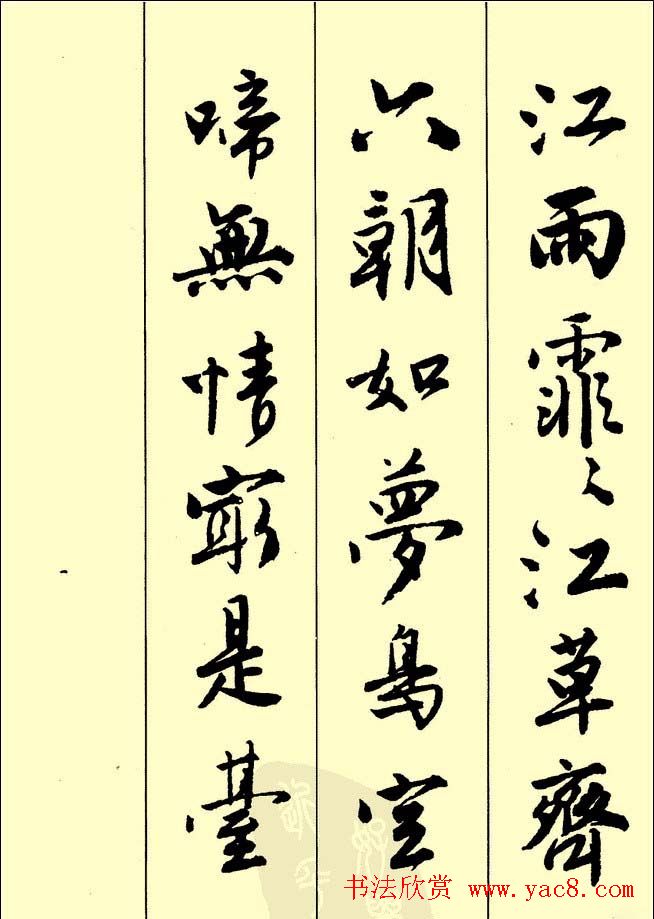 江雨霏々江草齊
六朝如夢鳥空
啼無情㝡是臺
书法欣赏 www.yac8.com